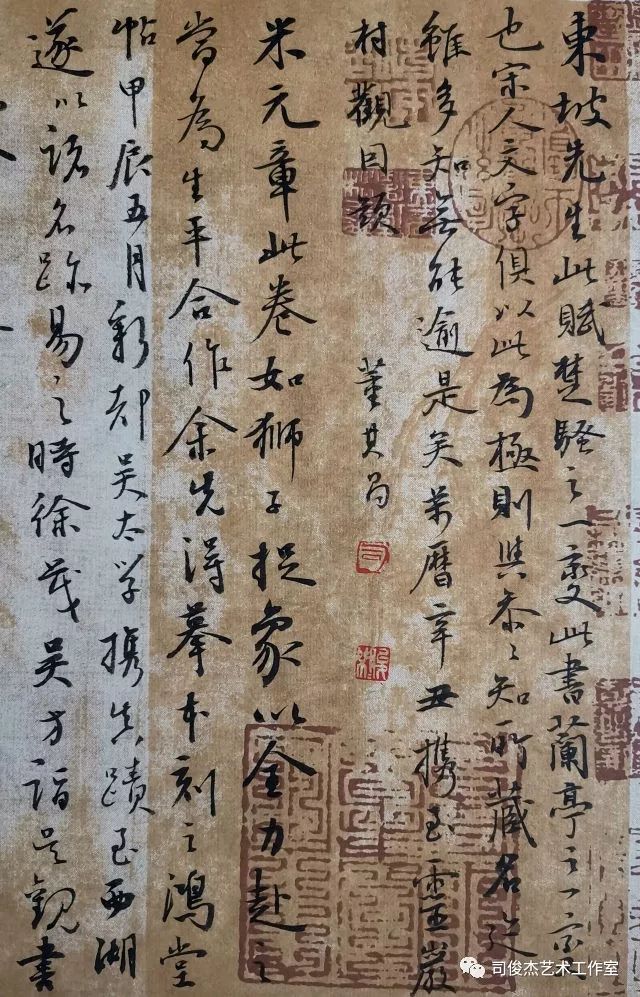 東坡先生此賦楚騷之一變此書蘭亭之一變
也宋人文字俱以此為極則與參參知所藏名迹
雖多知無能逾是矣萬曆辛丑攜至靈巖
村觀因題 董其昌
米元章此卷如獅子捉象以全力赴之
當為生平合作余先得摹本刻之鴻堂
帖甲辰五月新都吳太學攜真蹟至西湖
遂以諸名跡易之時徐茂吳方詣吳觀書
司俊杰艺术工作室